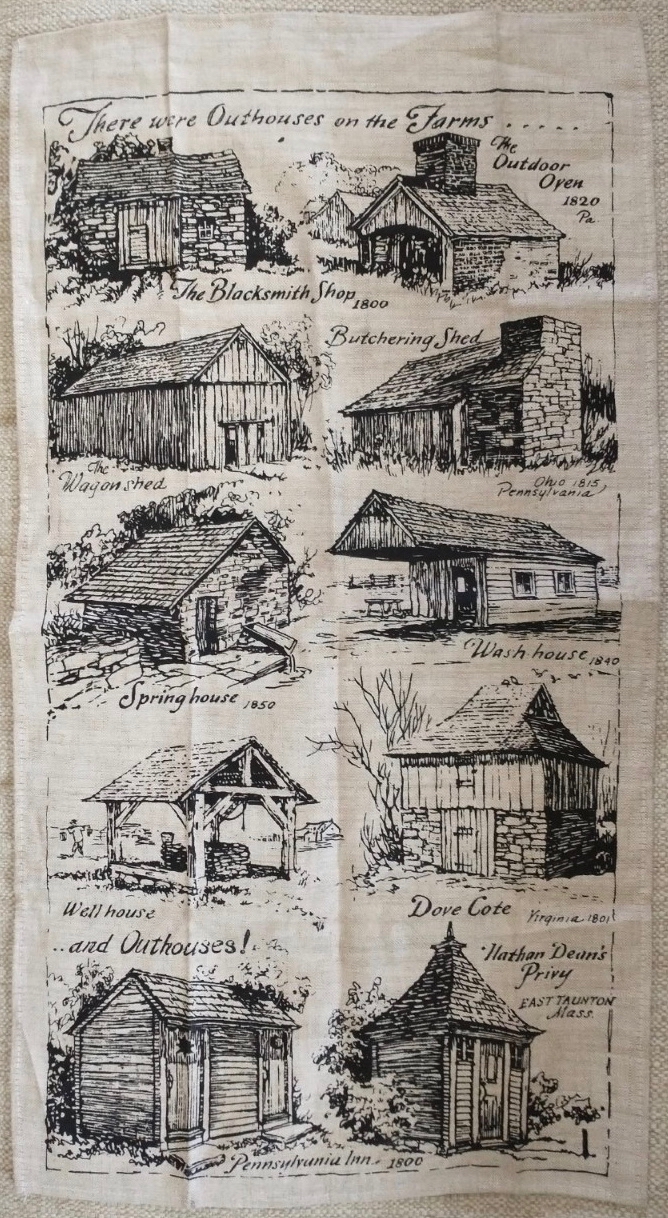 There were Outhouses on the Farms . . . . .
The
Outdoor
Oven
1820
Pa
The Blacksmith Shop 1800
Butchering Shed
The
Wagon shed
Ohio 1815
Pennsylvania
Wash house 1840
Spring house 1850
Well house
Dove Cote Virginia 1801
..and Outhouses!
Nathan Dean's
Privy
EAST TAUNTON
Mass.
Pennsylvania Inn. 1800